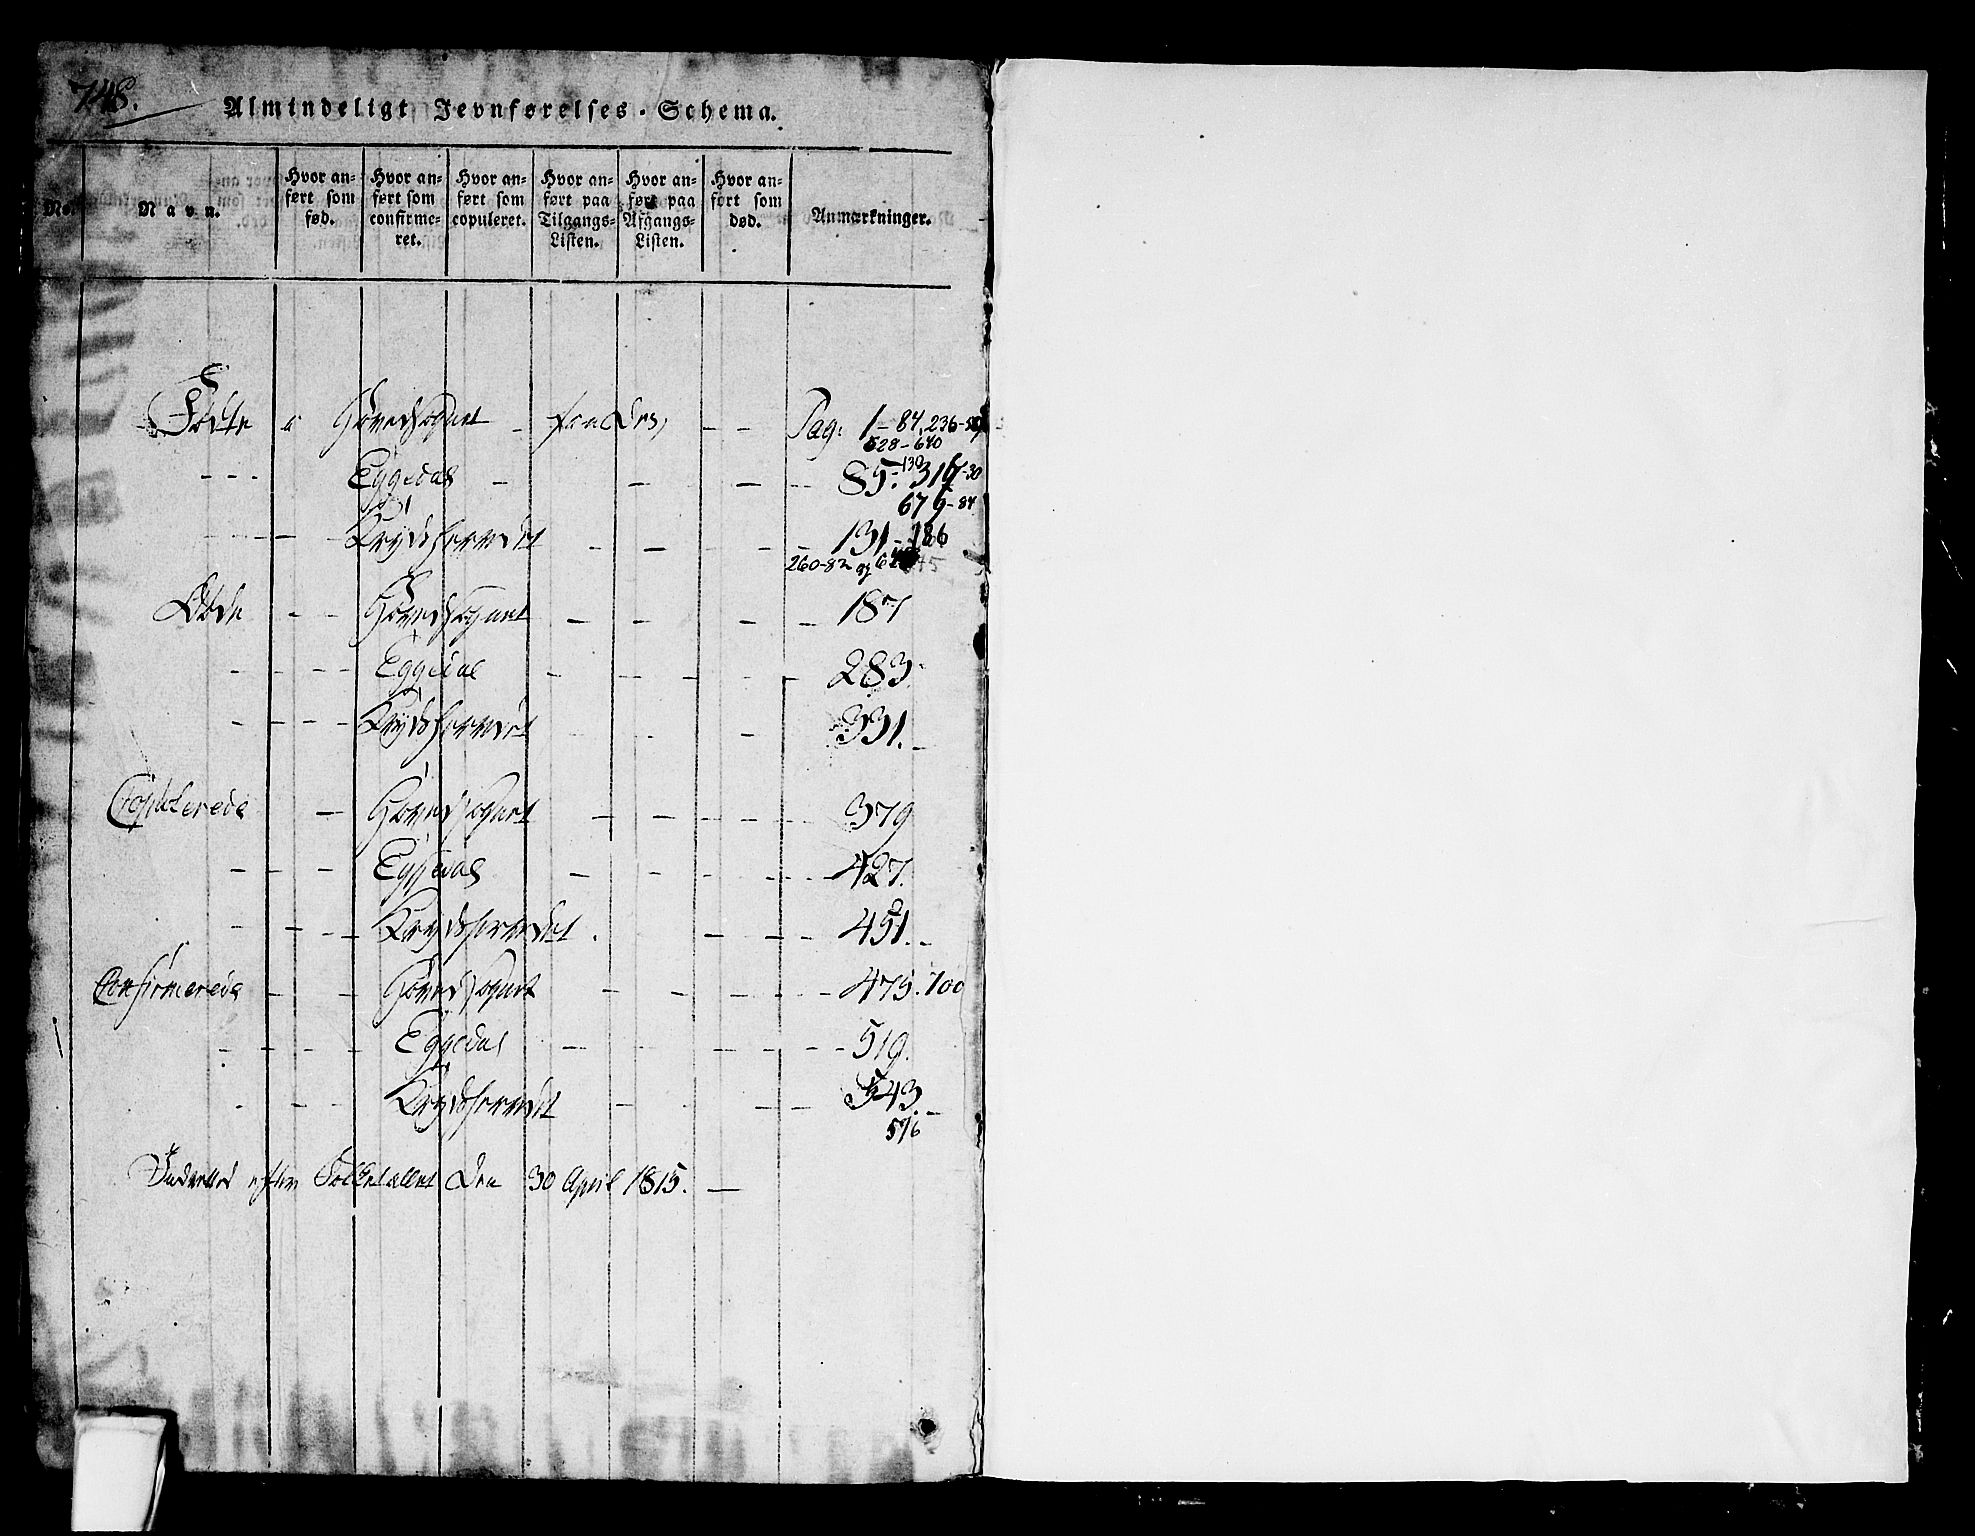 748.
Almindeligt Jevnførelses-Schema.
No. Navn. Hvor anført som fød. Hvor anført som confirmeret. Hvor anført som copuleret. Hvor anført paa Tilgangs-Listen. Hvor anført paa Afgangs-Listen. Hvor anført som død. Anmærkninger.
Fødte i Hovedsognet – Pag: 1–84, 236–
528–640
– – – Eggedal – – – – 85–130 316–30
679–84
– – – Krydsherredet – – – – 131–186
260–82 og
Døde – – Hovedsognet – – – – 187
– – – – Eggedal – – – – – 283.
– – – – Krydsherredet – – – 331. –
Copulerede – Hovedsognet – – – – – 379
– – – Eggedal – – – – – – 427.
– – – – Krydsherredet. – – – 451. –
Confirmerede – – Hovedsognet – – – – – 475. 700
– – – – Eggedal – – – – – – 519.
– – – Krydsherredet – – – – 543. –
576
Indrettet efter Folketallet den 30 April 1815. –